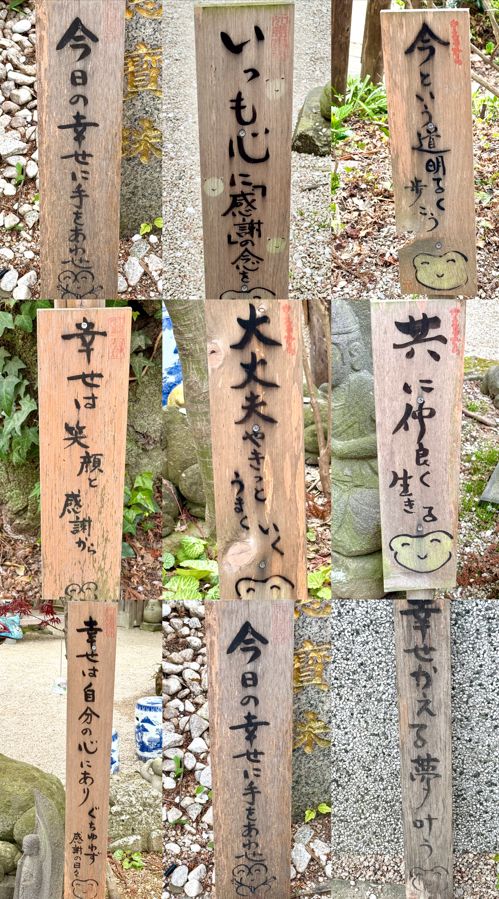 今日の幸せに手をあわせ
寳
いつも心に「感謝」の念を
今という道明るく
歩こう
幸せは
笑顔と
感謝から
大丈夫やきっと
うまくいく
共に仲良く
生きる
幸せは自分の心にあり
ぐちゆわず
感謝の日々
今日の幸せに手をあわせ
寳
幸せかえる夢叶う